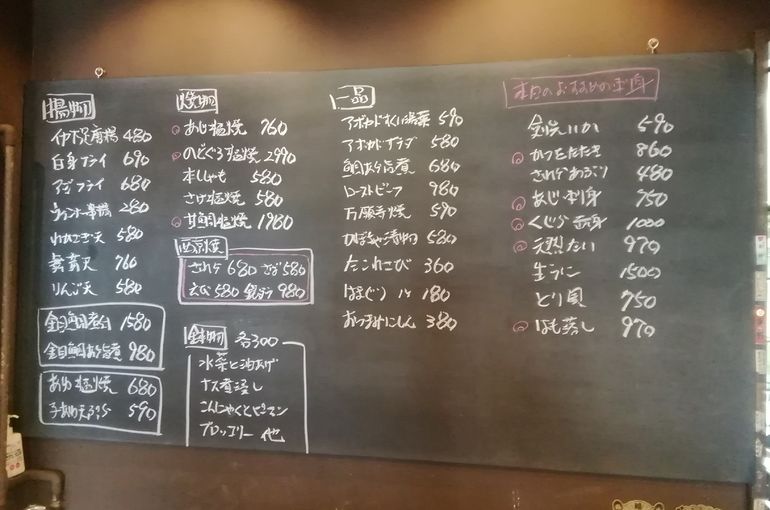 揚物
白身フライ 690
アジフライ 680
ウィンナー串揚 280
わかさぎ天 580
舞茸天 760
りんご天 580
金目鯛煮付 1580
金目鯛あら煮 980
あゆ塩焼 680
子あゆ天ぷら 590
焼物
あじ塩焼 760
のどぐろ塩焼 2990
本ししゃも 580
さけ塩焼 580
甘鯛塩焼 1980
西京焼
さわら 680 さけ 580
えび 580 銀だら 980
鉢物 各300
水菜と油あげ
ナス煮浸し
こんにゃくとピーマン
ブロッコリー 他
一品
590
アボカドサラダ 580
鯛あら煮 680
ローストビーフ 980
万願寺焼 590
漬物 580
たこわさび 360
はまぐり 1ケ 180
おつまみにしん 380
本日のおすすめの刺身
いか 590
かつをたたき 860
さわらあぶり 480
あじ刺身 750
くじら赤身 1000
天然たい 970
生うに 1500
とり貝 750
はも落し 970